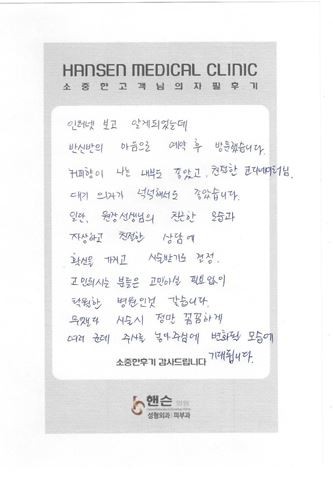 HANSEN MEDICAL CLINIC
소중한고객님의자필후기
인터넷 보고 알게되었는데
반신반의 마음으로 예약 후 방문했습니다.
커피향이 나는 내부도 좋았고, 친절한 코디네이터님,
대기 의자가 넉넉해서도 좋았습니다.
일단, 원장선생님의 친근한 모습과
자상하고 친절한 상담에
확신을 가지고 시술받기로 결정.
고민하시는 분들은 고민하실 필요없이
탁월한 병원인것 같습니다.
무엇보다 시술시 정말 꼼꼼하게
여러 군데 주사를 놓아주심에 변화될 모습에
기대됩니다.
소중한후기 감사드립니다
핸슨 의원
성형외과 피부과